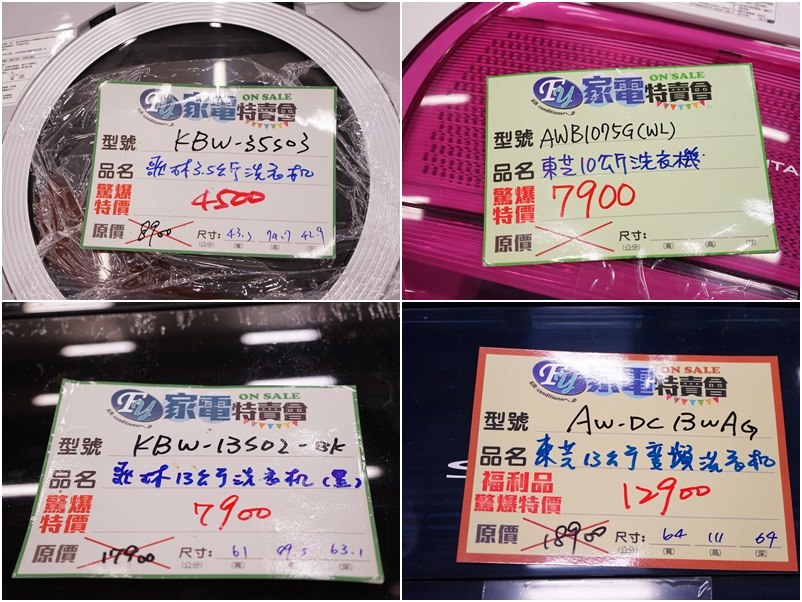 Fu 家電特賣會 ON SALE
AIR conditioner
型號 KBW-35S03
品名 歌林3.5公斤洗衣机
驚爆特價 4500
原價 8900 尺寸: 43.5 74.7 42.9
(公分) (寬) (高) (深)
Fu 家電特賣會 ON SALE
AIR conditioner
型號 AWB1075G(WL)
品名 東芝10公斤洗衣機
驚爆特價 7900
原價 尺寸:
(公分) (寬) (高) (深)
Fu 家電特賣會 ON SALE
AIR conditioner
型號 KBW-13S02-BK
品名 歌林13公斤洗衣机(黑)
驚爆特價 7900
原價 17900 尺寸: 61 99.5 63.1
(公分) (寬) (高) (深)
Fu 家電特賣會 ON SALE
AIR conditioner
型號 AW-DC13WAG
品名 東芝13公斤變頻洗衣机
福利品
驚爆特價 12900
原價 18900 尺寸: 64 111 64
(公分) (寬) (高) (深)